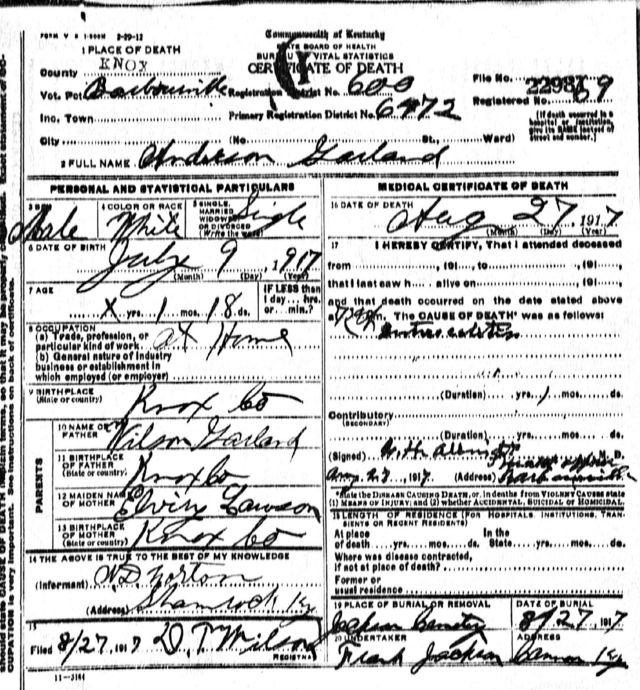 FORM V S 1-500M 2-29-12
Commonwealth of Kentucky
STATE BOARD OF HEALTH
BUREAU VITAL STATISTICS
CERTIFICATE OF DEATH
1 PLACE OF DEATH
County KNOX
Vot. Pct Barbourville
Registration District No. 600
File No. 22987
Inc. Town
Primary Registration District No. 6472
Registered No. 69
City (No. St., Ward)
(If death occurred in a hospital or institution, give its NAME instead of street and number.)
2 FULL NAME Anderson Garland
PERSONAL AND STATISTICAL PARTICULARS
3 SEX Male
4 COLOR OR RACE White
5 SINGLE, MARRIED WIDOWED OR DIVORCED (Write the word) Sigle
6 DATE OF BIRTH July 9, 1917
(Month) (Day) (Year)
7 AGE X yrs. 1 mos. 18 ds.
IF LESS than 1 day... hrs. or... min.?
8 OCCUPATION
(a) Trade, profession, or particular kind of work at Home
(b) General nature of industry business or establishment in which employed (or employer)
9 BIRTHPLACE (State or country) Knox Co
PARENTS
10 NAME OF FATHER Wilson Garland
11 BIRTHPLACE OF FATHER (State or country) Knox Co
12 MAIDEN NAME OF MOTHER Elviry Lawson
13 BIRTHPLACE OF MOTHER (State or country) Knox Co
14 THE ABOVE IS TRUE TO THE BEST OF MY KNOWLEDGE
(Informant) Norton
(Address) Shamrock Ky
15
Filed 8/27, 1917 D. T. Wilson
REGISTRAR
11-3184
MEDICAL CERTIFICATE OF DEATH
16 DATE OF DEATH Aug 27, 1917
(Month) (Day) (Year)
17 I HEREBY CERTIFY, That I attended deceased
from, 191..., to, 191...,
that I last saw h... alive on, 191...,
and that death occurred on the date stated above
at m. The CAUSE OF DEATH* was as follows:
(Duration) yrs. mos. ds.
Contributory
(SECONDARY)
(Duration) yrs. mos. ds.
(Signed) M. D.
Aug 27, 1917. (Address)
*State the DISEASE CAUSING DEATH, or, in deaths from VIOLENT CAUSES state (1) MEANS OF INJURY and (2) whether ACCIDENTAL, SUICIDAL or HOMICIDAL.
18 LENGTH OF RESIDENCE (FOR HOSPITALS, INSTITUTIONS, TRANSIENTS OR RECENT RESIDENTS)
At place of death yrs. mos. ds. In the State yrs. mos. ds.
Where was disease contracted,
if not at place of death?
Former or
usual residence
19 PLACE OF BURIAL OR REMOVAL Jackson
DATE OF BURIAL 8/27, 1917
20 UNDERTAKER Frank Jackson
ADDRESS Cannon Ky